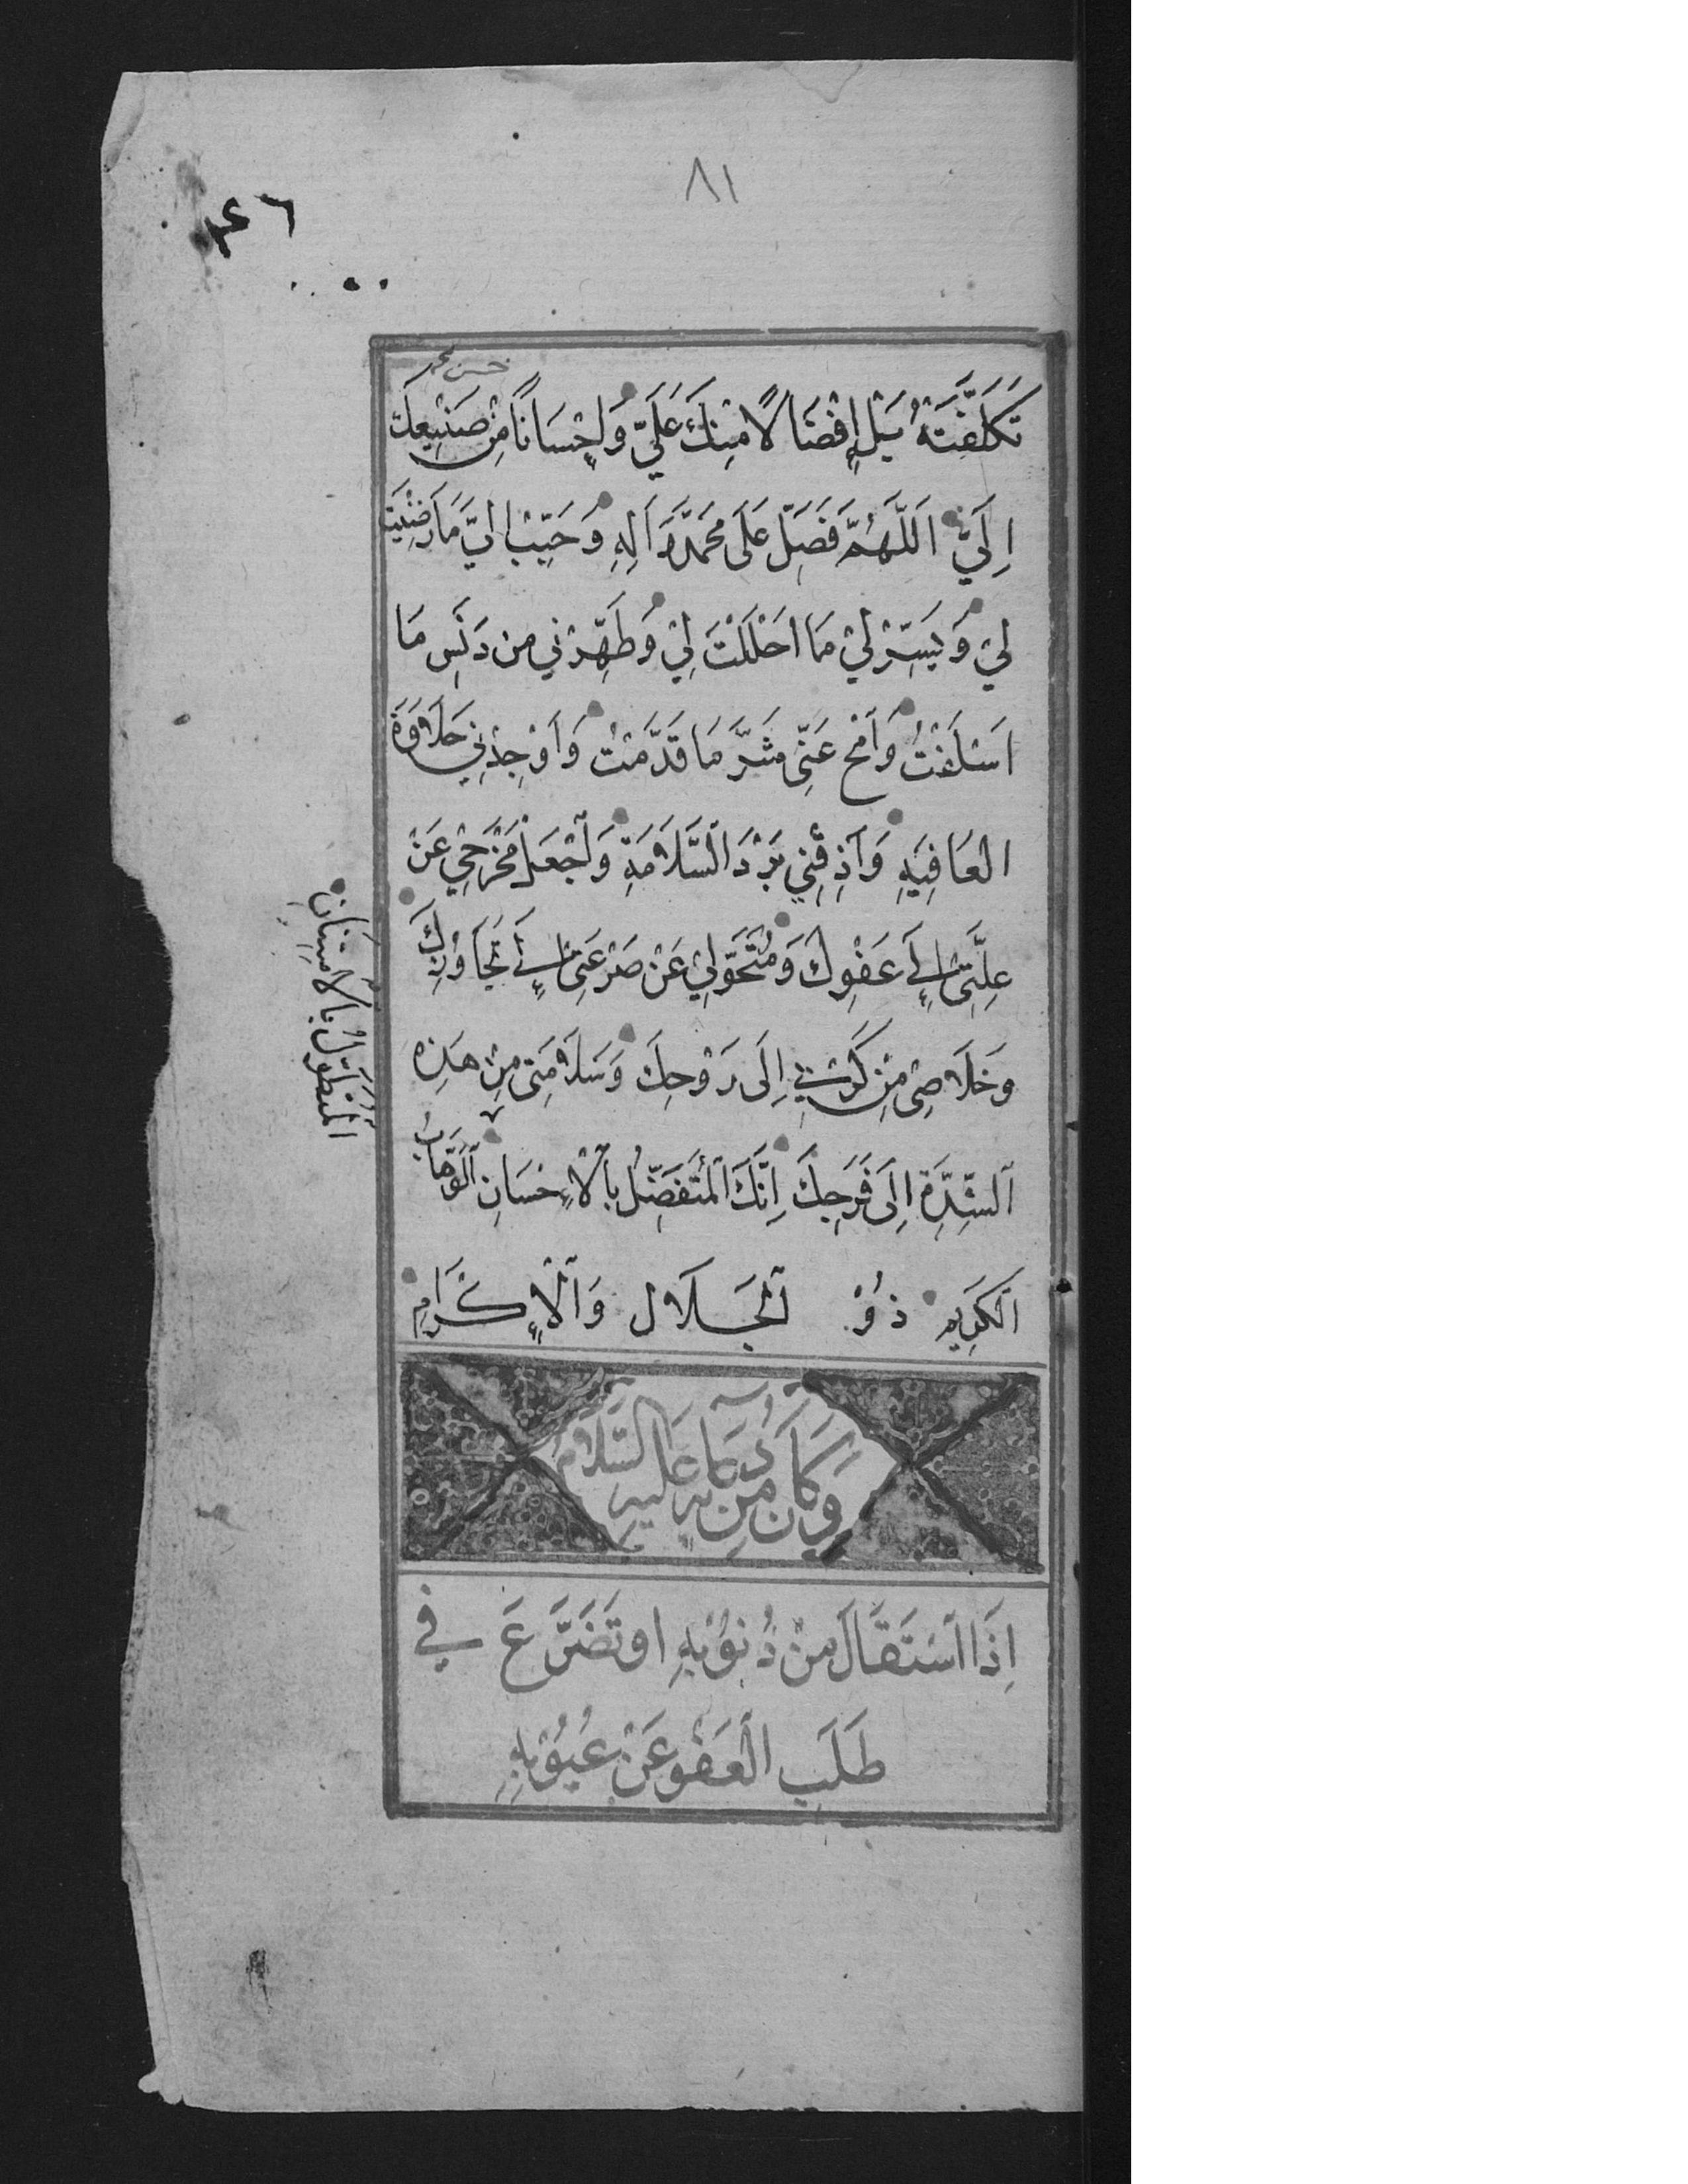 ٨١
٤٦
تَكَلَّفَتْهُ بَلْ إِفْضَالًا مِنْكَ عَلَيَّ وَاِحْسَانًا مِنْ صَنِيعِكَ
اِلَيَّ اَللَّهُمَّ فَصَلِّ عَلَى مُحَمَّدٍ وَاَلِهِ وَحَبِّبْ اِلَيَّ مَا رَضِيْتَ
لِيْ وَيَسِّرْ لِيْ مَا اَحْلَلْتَ لِيْ وَطَهِّرْنِي مِن دَنَسِ مَا
اَسْلَفْتُ وَاَمْحُ عَنِّي شَرَّ مَا قَدَّمْتُ وَاَوْجِدْنِي حَلَاوَةَ
العَافِيَةِ وَاَذِقْنِي بَرْدَ السَّلَامَةِ وَاجْعَلْ مَخْرَجِي عَنْ
عِلَّتِي اِلَى عَفْوِكَ وَمُتَحَوَّلِيْ عَنْ صَرْعَتِي اِلَى تَجَاوُزِكَ
وَخَلَاصِي مِنْ كَرْبِي اِلَى رَوْحِكَ وَسَلَامَتِي مِنْ هَذِهِ
اَلشِّدَّةِ اِلَى فَرَجِكَ اِنَّكَ اَلْمُتَفَضِّلُ بِالْاِحْسَانِ اَلْوَهَّابُ
اَلْكَرِيمِ ذُوْ اَلْجَلَالِ وَاَلْاِكْرَامِ
المُتَطَوِّلُ بِالاِمْتِنَانِ
وَكَانَ مِنْ دُعَائِهِ عَلَيْهِ السَّلَامُ
اِذَا اَسْتَقَالَ مِنْ ذُنُوْبِهِ او تَضَرَّعَ فِي
طَلَبِ الْعَفْوِ عَنْ عُيُوْبِهِ